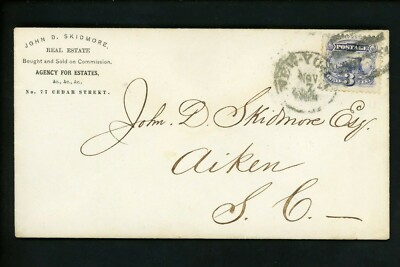 JOHN D. SKIDMORE,
REAL ESTATE
Bought and Sold on Commission.
AGENCY FOR ESTATES,
&c., &c., &c.,
No. 77 CEDAR STREET.
NEW-YORK
NOV
7
POSTAGE
3
John D. Skidmore Esq.
Aiken
S. C—